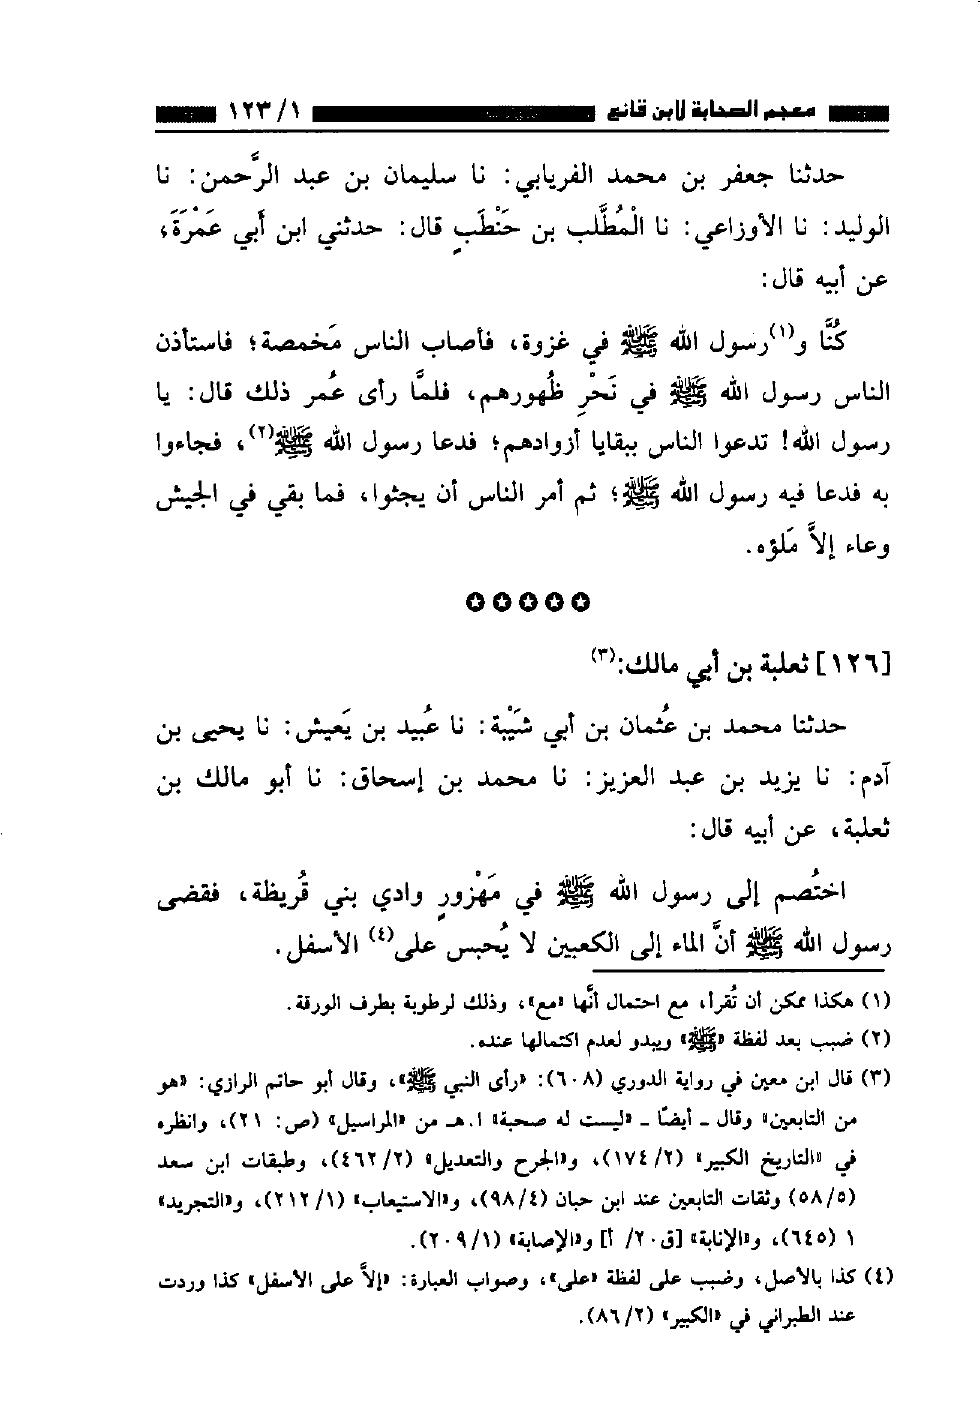 معجم الصحابة لابن قانع ١/ ١٢٣
حدثنا جعفر بن محمد الفريابي: نا سليمان بن عبد الرَّحمن: نا
الوليد: نا الأوزاعي: نا الْمُطَّلب بن حَنْطَبٍ قال: حدثني ابن أَبي عَمْرَةَ،
عن أبيه قال:
كُنَّا و(١)رسول الله ﷺ في غزوة، فأصاب الناس مَخمصة؛ فاستأذن
الناس رسول الله ﷺ في نَحْرِ ظُهورهم، فلمَّا رأى عُمر ذلك قال: يا
رسول الله! تدعوا الناس ببقايا أزوادهم؛ فدعا رسول الله ﷺ(٢)، فجاءوا
به فدعا فيه رسول الله ﷺ؛ ثم أمر الناس أن يجثوا، فما بقي في الجيش
وعاء إلاَّ مَلؤه.
✪✪✪✪✪
[١٢٦] ثعلبة بن أبي مالك:(٣)
حدثنا محمد بن عُثمان بن أبي شَيْبة: نا عُبيد بن يَعيش: نا يحيى بن
آدم: نا يزيد بن عبد العزيز: نا محمد بن إسحاق: نا أبو مالك بن
ثعلبة، عن أبيه قال:
اختُصم إلى رسول الله ﷺ في مَهْزورٍ وادي بني قُريظة، فقضى
رسول الله ﷺ أنَّ الماء إلى الكعبين لا يُحبس على(٤) الأسفل.
(١) هكذا ممكن أن تُقرأ، مع احتمال أنَّها «مع»، وذلك لرطوبة بطرف الورقة.
(٢) ضبب بعد لفظة «ﷺ» ويبدو لعدم اكتمالها عنده.
(٣) قال ابن معين في رواية الدوري (٦٠٨): «رأى النبي ﷺ»، وقال أبو حاتم الرازي: «هو
من التابعين» وقال ـ أيضًا ـ «ليست له صحبة» ا.هـ من «المراسيل» (ص: ٢١)، وانظره
في «التاريخ الكبير» (١٧٤/٢)، و«الجرح والتعديل» (٤٦٢/٢)، وطبقات ابن سعد
(٥٨/٥) وثقات التابعين عند ابن حبان (٩٨/٤)، و«الاستيعاب» (٢١٢/١)، و«التجريد»
١ (٦٤٥)، و«الإنابة» [ق٢٠/ أ] و«الإصابة» (٢٠٩/١).
(٤) كذا بالأصل، وضبب على لفظة «على»، وصواب العبارة: «إلاَّ على الأسفل» كذا وردت
عند الطبراني في «الكبير» (٨٦/٢).